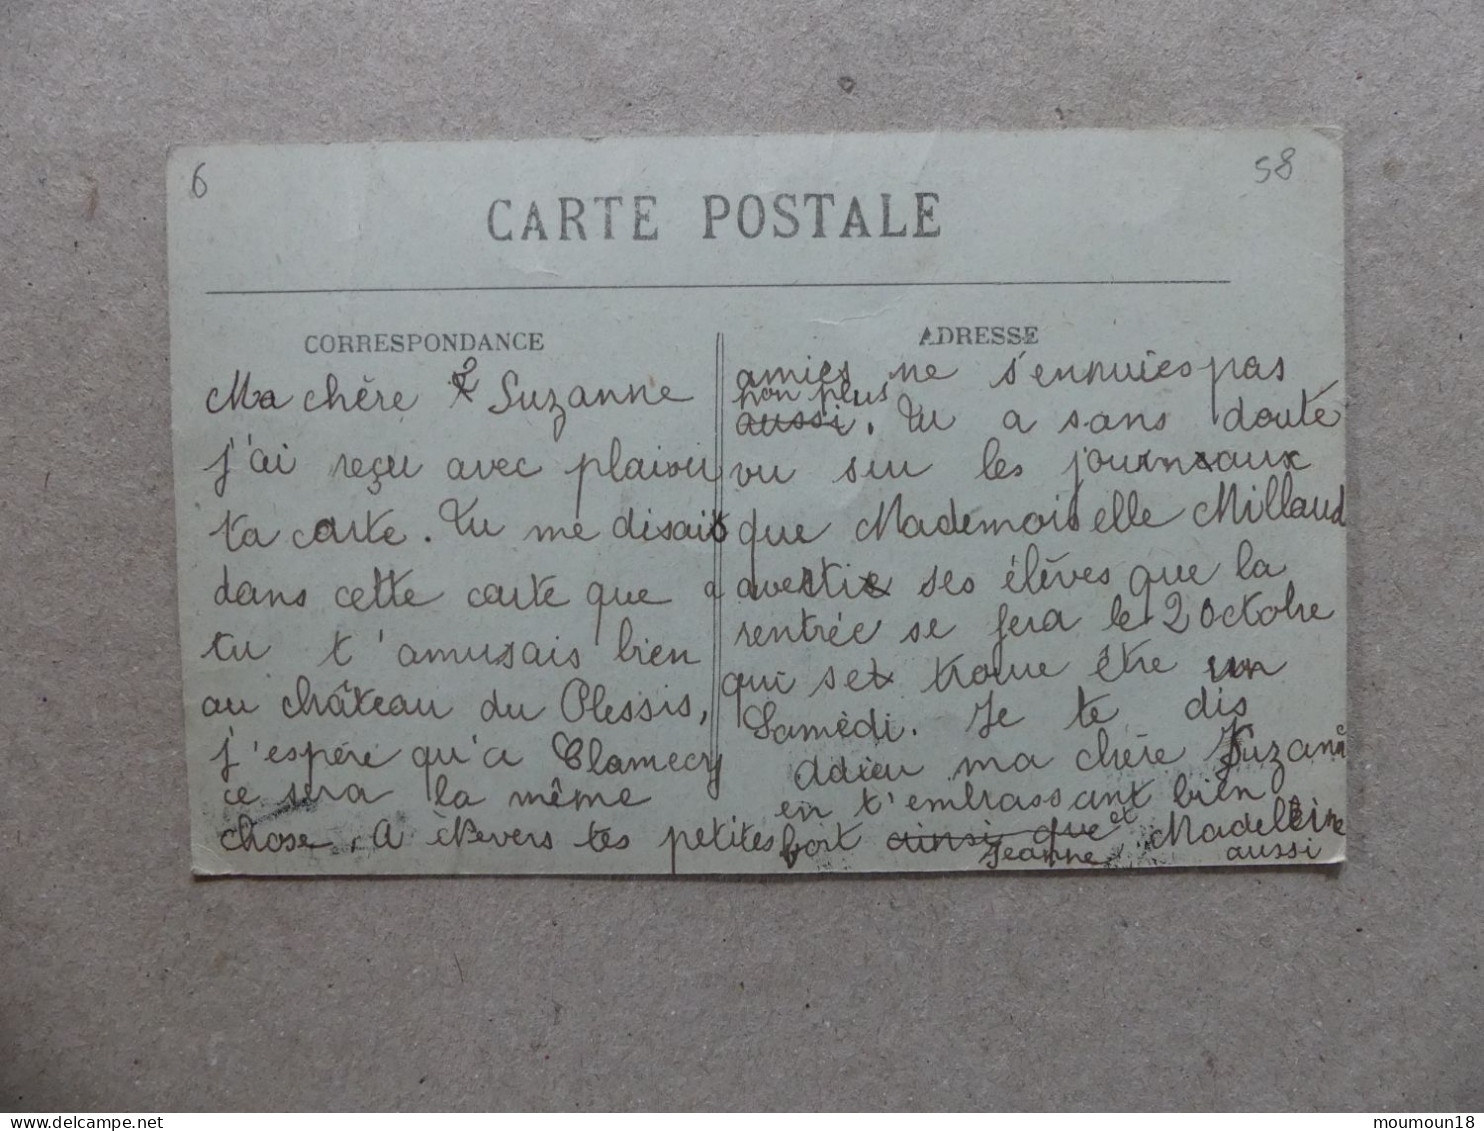 6
58
CARTE POSTALE
CORRESPONDANCE
Ma chère Suzanne
j'ai reçu avec plaisir
ta carte. Tu me disait
dans cette carte que
tu t'amusais bien
au château du Plessis,
j'espère qu'a Clamecy
ce sera la même
chose. A Nevers tes petites
ADRESSE
amies ne s'ennuies pas
non plus
aussi. Tu a sans doute
vu sur les journaux
que Mademoiselle Millaud
avertie ses élèves que la
rentrée se fera le 2 octobre
qui set trouve être un
Samèdi. Je te dis
Adieu ma chère Suzann
en t'embrassant bien
fort ainsi que et Madeleine
Jeanne aussi
moumoun18